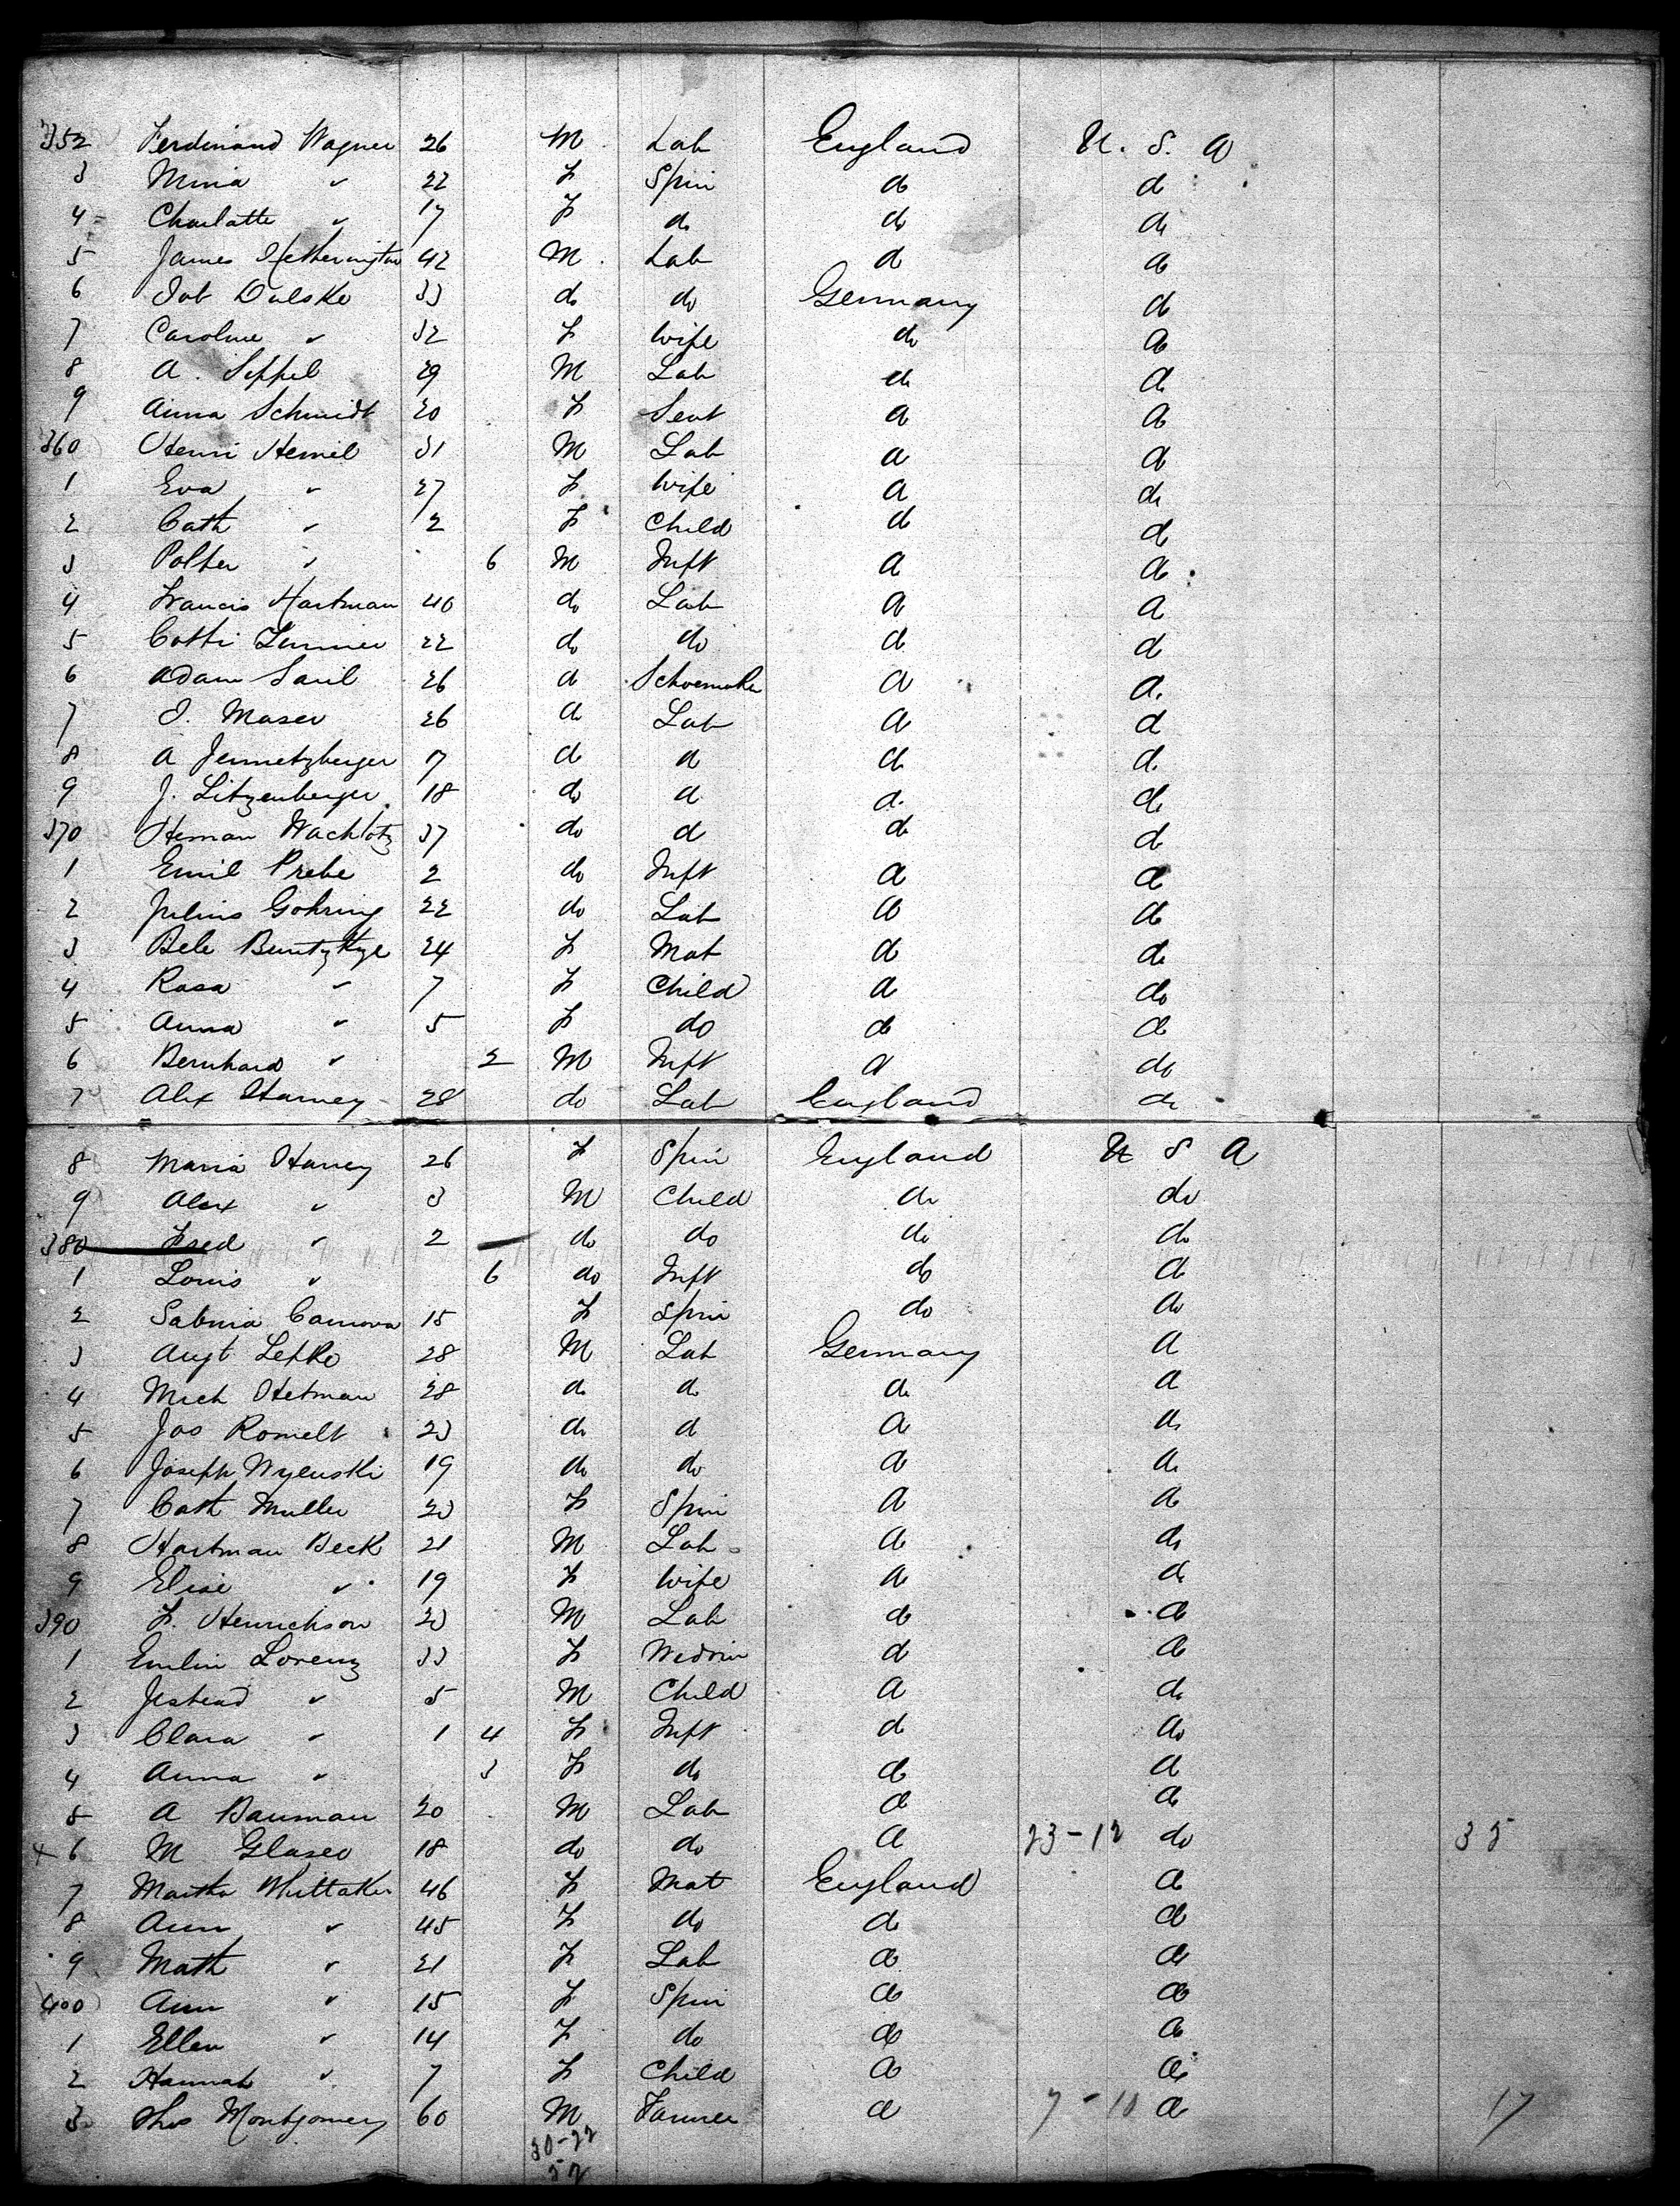 352 Ferdinand Wagner 26 M Lab England U. S. A
3 Mina " 22 F Spin do do
4 Charlotte " 17 F do do do
5 James Hetherington 42 M Lab do do
6 Job Dulske 33 do do Germany do
7 Caroline " 32 F Wife do do
8 A. Seppel 29 M Lab do do
9 Anna Schmidt 20 F Servt do do
360 Henri Hemel 31 M Lab do do
1 Eva " 27 F Wife do do
2 Cath " 2 F Child do do
3 " 6 M Inft do do
4 Francis Hartman 40 do Lab do do
5 22 do do do do
6 Adam 26 do Schoemaker do do
7 Maser 26 do Lab do do
8 A Jennetzberger 7 do do do do
9 J. Litzenberger 18 do do do do
370 Heman 37 do do do do
1 Emil Prebe 2 do Inft do do
2 Julius Gohring 22 do Lab do do
3 24 F Mat do do
4 Rosa " 7 F Child do do
5 Anna " 5 F do do do
6 Bernhard " 2 M Inft do do
7 Alex Harvey 28 do Lab England do
8 Maria Harvey 26 F Spin England U S A
9 Alex " 3 M Child do do
380 Fred " 2 do do do do
1 Louis " 6 do Inft do do
2 15 F Spin do do
3 Augt Lepko 28 M Lab Germany do
4 Mich Hetman 28 do do do do
5 Jas Romelt 23 do do do do
6 Joseph Wylenski 19 do do do do
7 Cath Muller 20 F Spin do do
8 Hartman Beck 21 M Lab do do
9 Elise " 19 F Wife do do
390 F. Henrichson 20 M Lab do do
1 Lorenz 33 F do do
2 " 5 M Child do do
3 Clara " 1 4 F Inft do do
4 Anna " 3 F do do do
5 A Bauman 20 M Lab do do
x 6 M Glaser 18 do do do 23-12 do 35
7 Martha Whittaker 46 F Mat England do
8 Ann " 45 F do do do
9 Math " 21 F Lab do do
400 Ann " 15 F Spin do do
1 Ellen " 14 F do do do
2 Hannah " 7 F Child do do
3 Thos Montgomery 60 M Farmer do 7-10 do 17
30-22
52